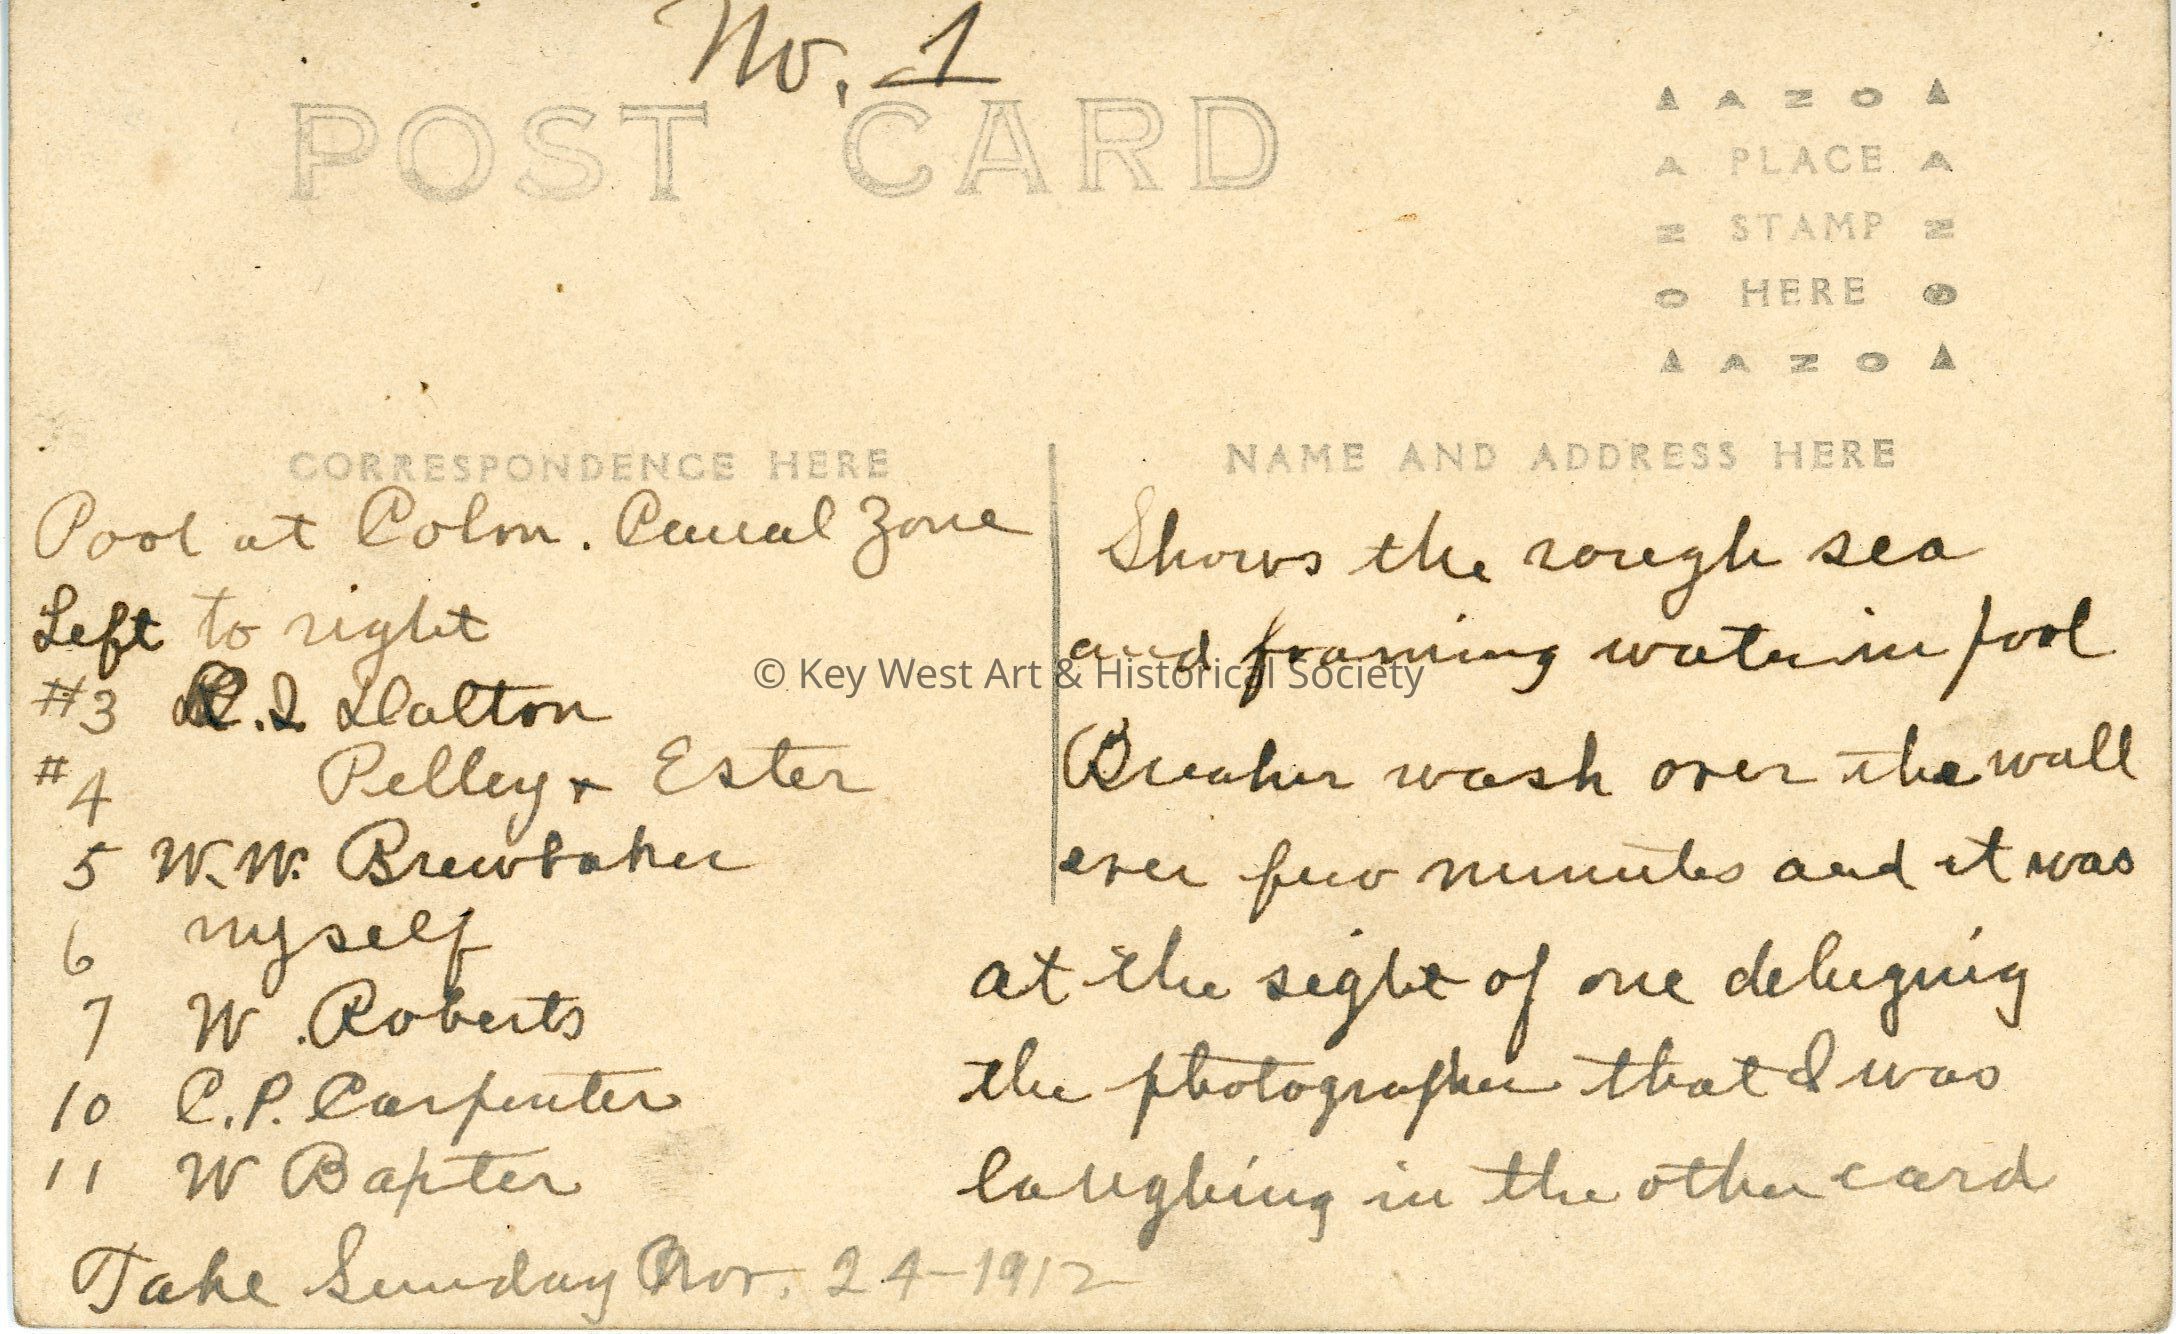 No. 1
POST CARD
AZO
PLACE
STAMP
HERE
AZO
CORRESPONDENCE HERE
Pool at Colon. Canal Zone
Left to right
#3 Dalton
#4 Pelley + Ester
5 W.W. Brewbaker
6 myself
7 W. Roberts
10 C.P. Carpenter
11 W Bapter
Take Sunday Nov. 24-1912
NAME AND ADDRESS HERE
Shows the rough sea
and foaming water in pool
Breaker wash over the wall
ever few minutes and it was
at the sight of one deluging
the photographer that I was
laughing in the other card
© Key West Art & Historical Society